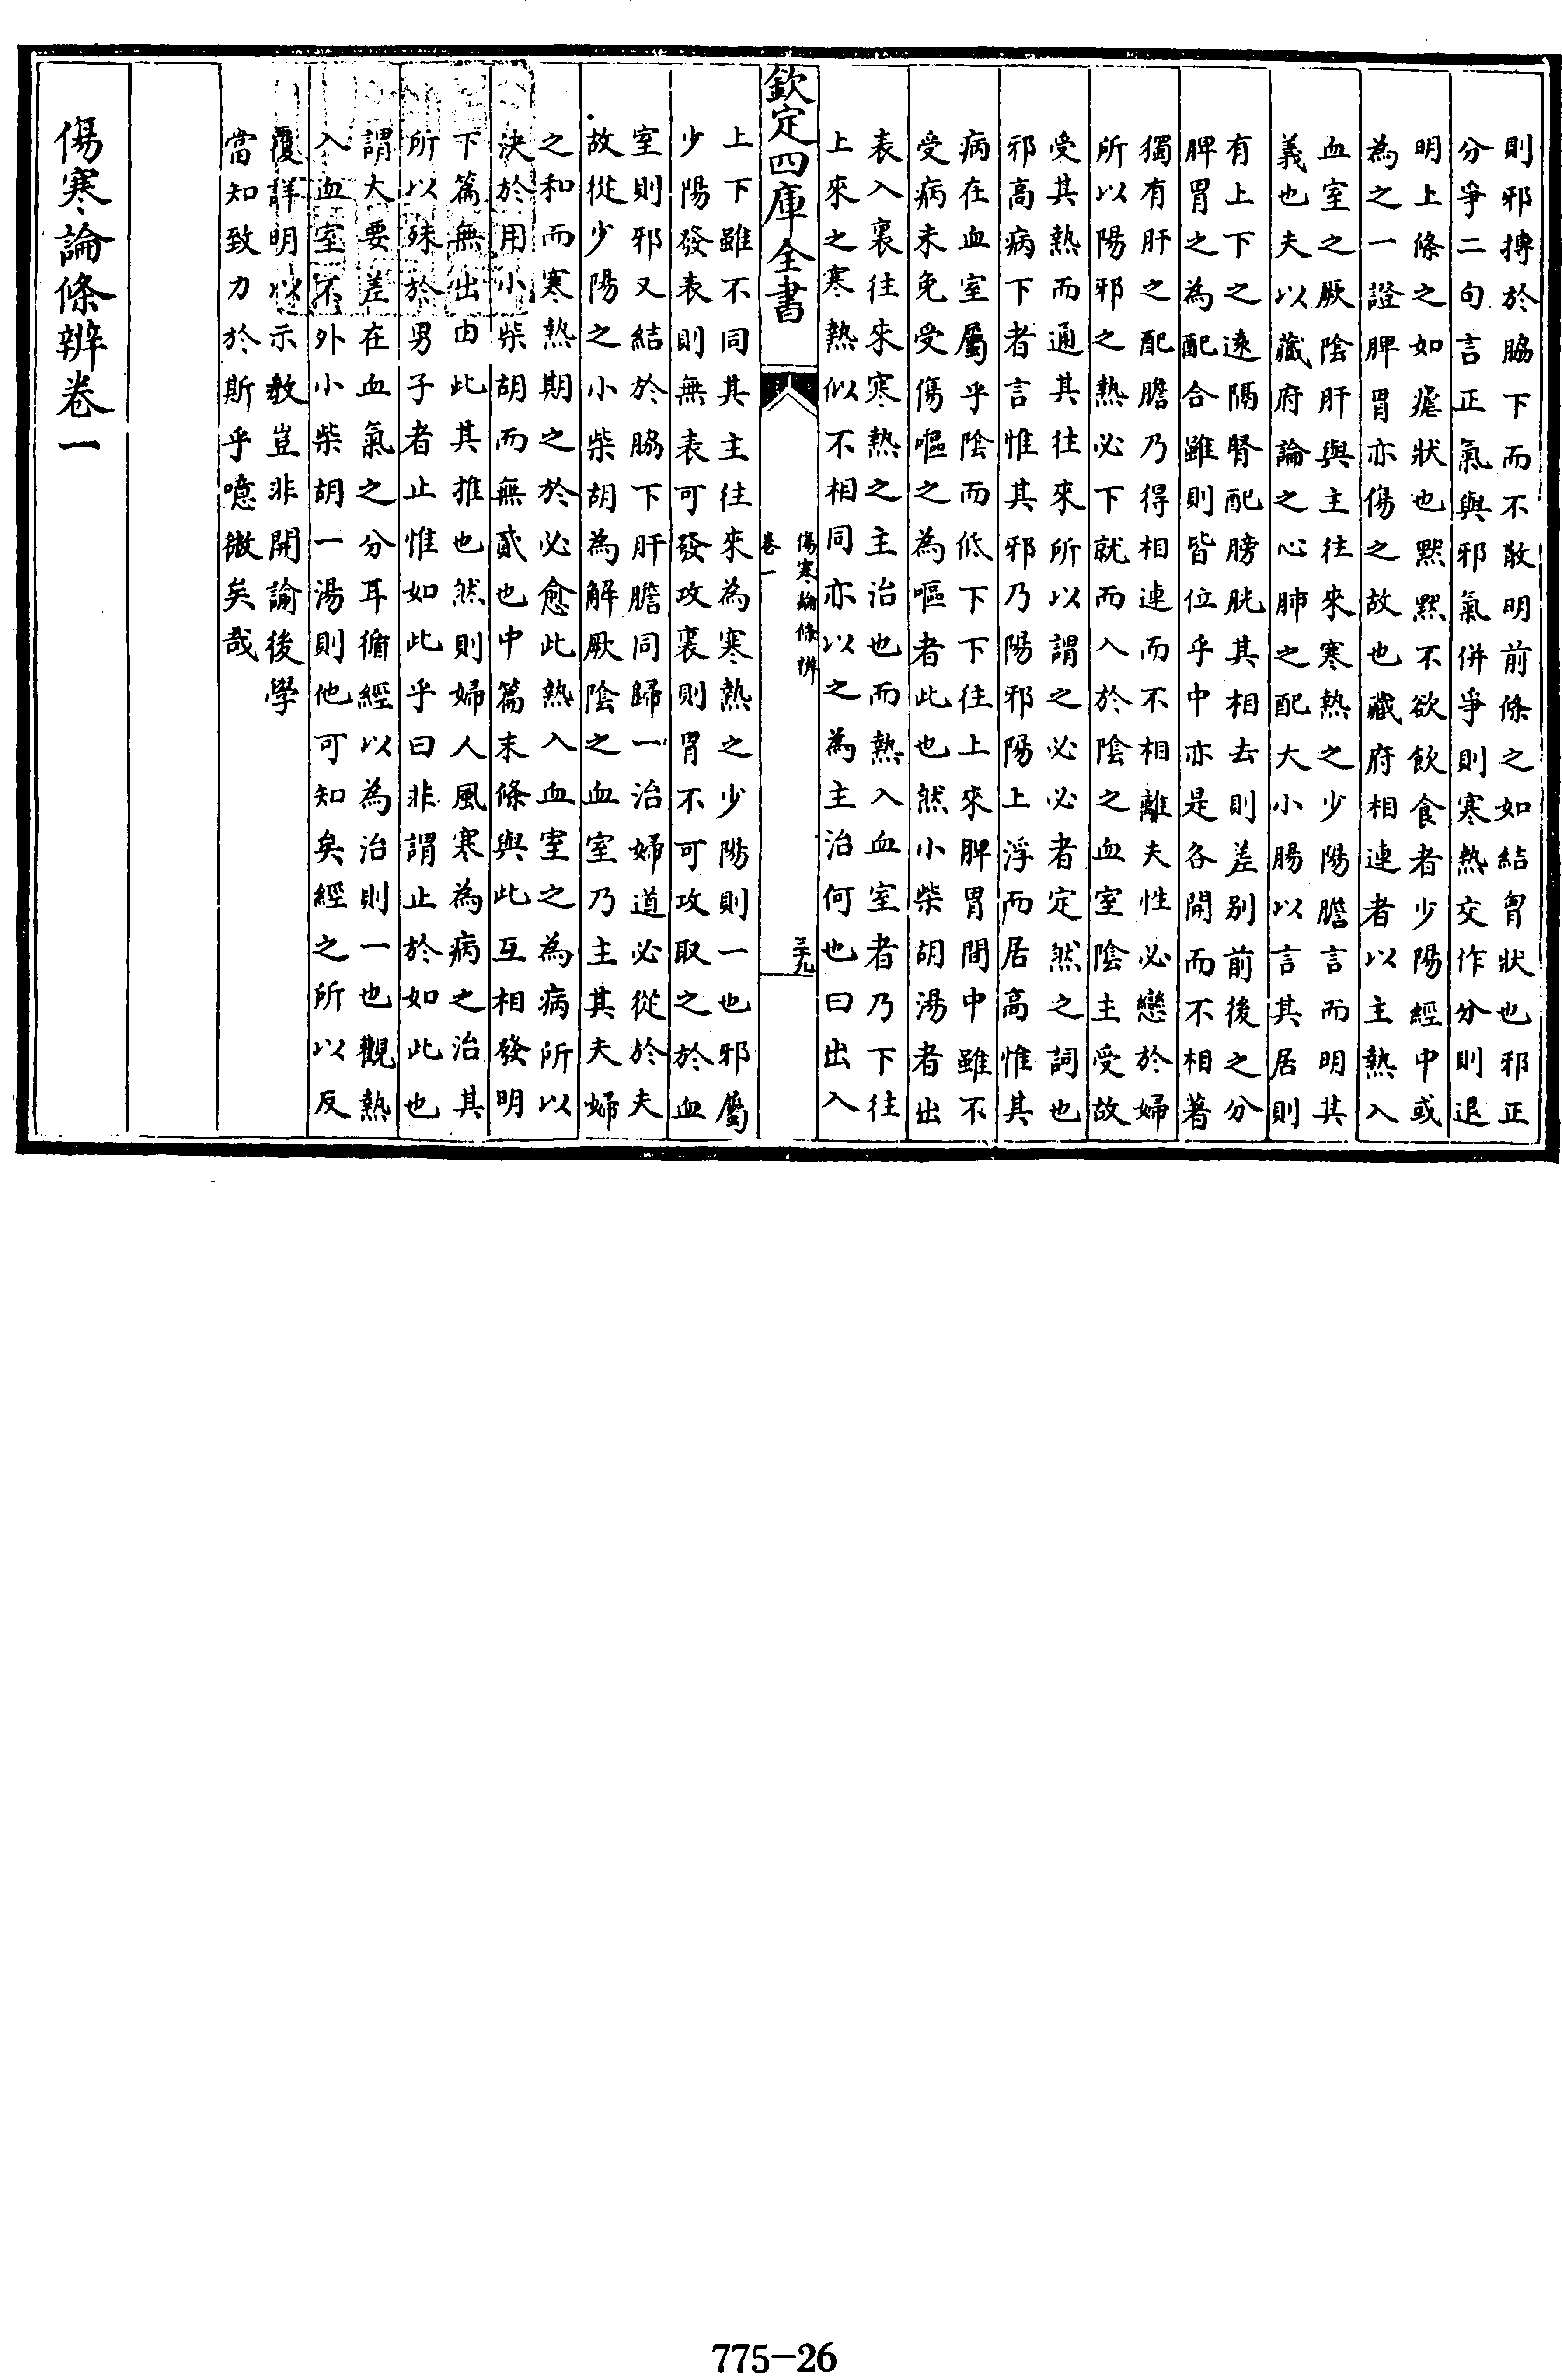 則邪摶於脇下而不散明前條之如結胷狀也邪正
分爭二句言正氣與邪氣併爭則寒熱交作分則退
明上條之如瘧狀也默默不欲飲食者少陽經中或
為之一證脾胃亦傷之故也藏府相連者以主熱入
血室之厥陰肝與主往來寒熱之少陽膽言而明其
義也夫以藏府論之心肺之配大小腸以言其居則
有上下之遠隔腎配膀胱其相去則差別前後之分
脾胃之為配合雖則皆位乎中亦是各開而不相著
獨有肝之配膽乃得相連而不相離夫性必戀於婦
所以陽邪之熱必下就而入於陰之血室陰主受故
受其熱而通其往來所以謂之必必者定然之詞也
邪高病下者言惟其邪乃陽邪陽上浮而居高惟其
病在血室屬乎陰而低下下往上來脾胃間中雖不
受病未免受傷嘔之為嘔者此也然小柴胡湯者出
表入裏往來寒熱之主治也而熱入血室者乃下往
上來之寒熱似不相同亦以之為主治何也曰出入
欽定四庫全書
傷寒論條辨
卷一
三九
上下雖不同其主往來為寒熱之少陽則一也邪屬
少陽發表則無表可發攻裏則胃不可攻取之於血
室則邪又結於脇下肝膽同歸一治婦道必從於夫
故從少陽之小柴胡為解厥陰之血室乃主其夫婦
之和而寒熱期之於必愈此熱入血室之為病所以
決於用小柴胡而無貳也中篇末條與此互相發明
下篇無出由此其推也然則婦人風寒為病之治其
所以殊於男子者止惟如此乎曰非謂止於如此也
謂大要差在血氣之分耳循經以為治則一也觀熱
入血室不外小柴胡一湯則他可知矣經之所以反
覆詳明以示教豈非開諭後學
當知致力於斯乎噫微矣哉
傷寒論條辨卷一
775-26